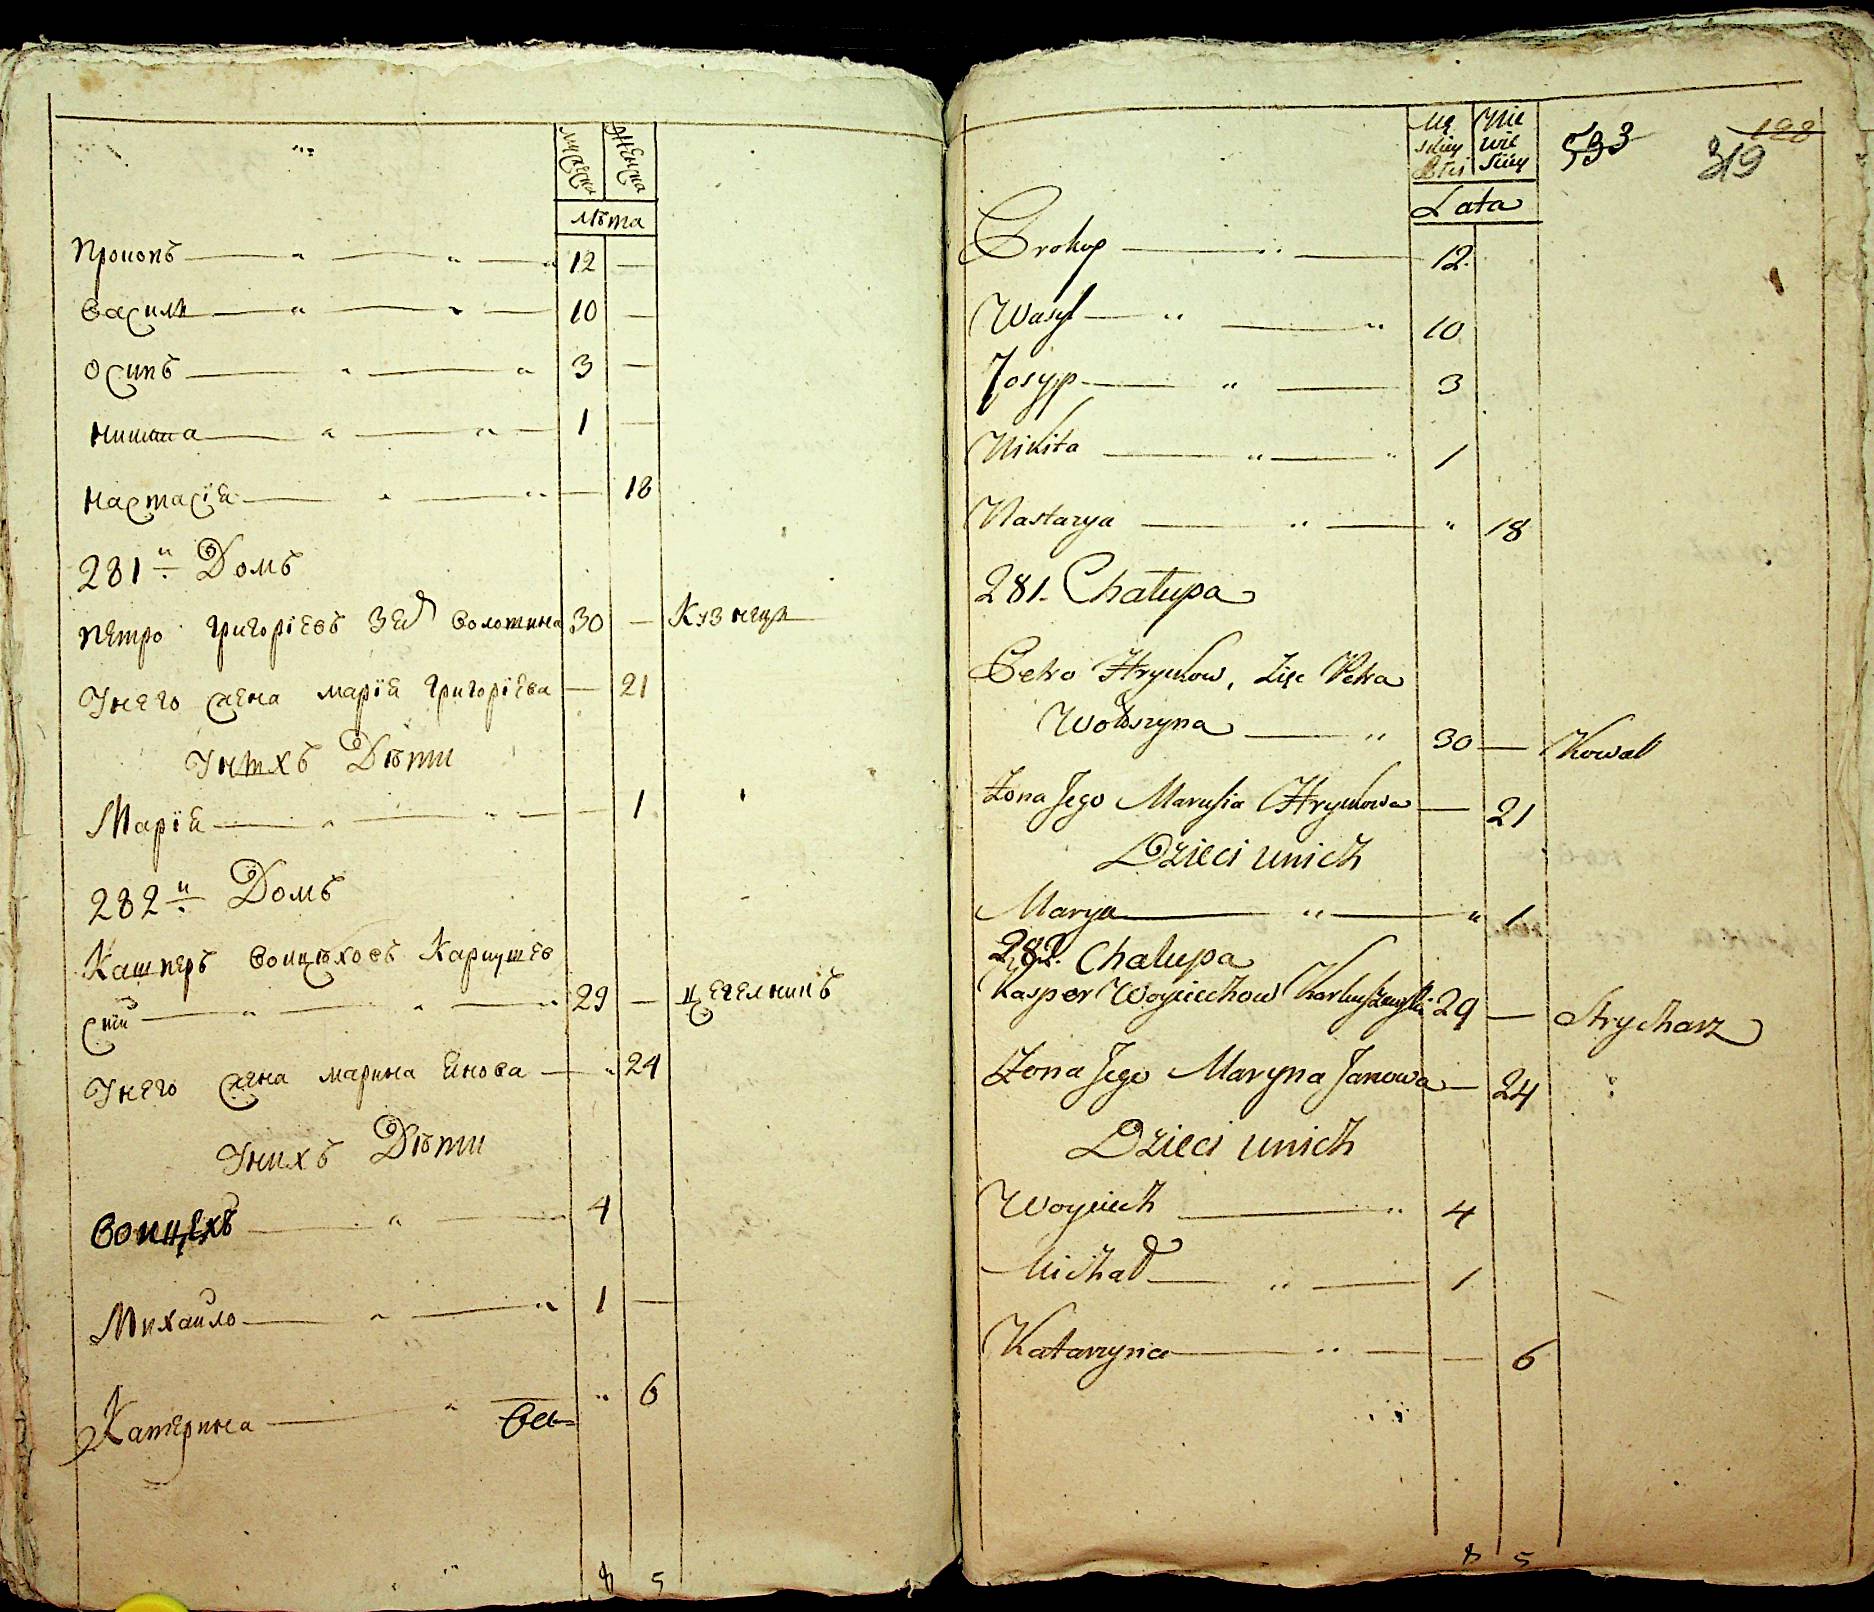 мужеска женска
лѣта
Прокопъ 12 —
Василь 10 —
Осипъ 3 —
Никита 1 —
Настасїя — 18
281й Домъ
Петро Григорїевъ Зят Волошина 30 — Кузнецъ
Унего жена Марїя Григорїева — 21
Унихъ Дѣти
Марїя — 1
282й Домъ
Кашперъ Войцѣховъ Карпушев
ский 29 — Цегелникъ
Унего жена Марина Янова — 24
Унихъ Дѣти
Войцехъ 4
Михайло 1 —
Катерина 6
8 5
533 198
319
Lata
Prokop 12
Wasyl 10
Josyp 3
Nikita 1
Nastazya 18
281. Chałupa
Petro Hryckow, Zięc Petra
Wołoszyna 30 — Kowal
Żona Jego Marusia Hryckowa — 21
Dzieci unich
Marya 1
282. Chałupa
Kasper Woyciechow 29 — Strycharz
Żona Jego Maryna Janowa — 24
Dzieci unich
Woyciech 4
Michał 1
Katarzyna — 6
8 5